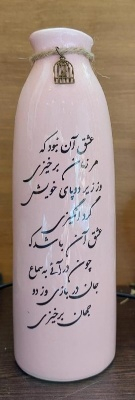 عشق آن نبود که
هر زمان برخیزی
وز زیر دو پای خویش
گرد انگیزی
عشق آن باشد که
چون در آئی به سماع
جان در بازی وز دو
جهان برخیزی